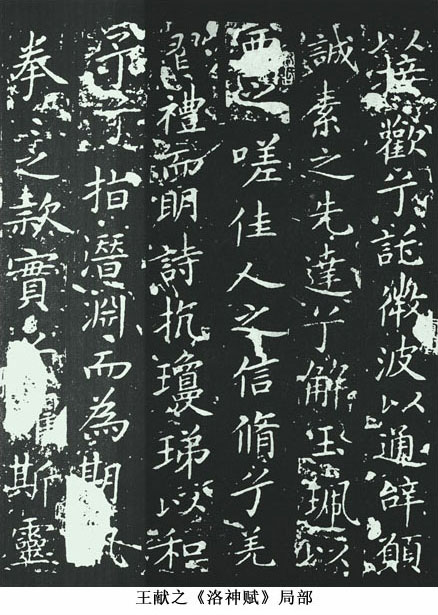 以接歡兮託微波以通辭願
誠素之先達兮解玉珮以
要之嗟佳人之信脩兮羌
習禮而眀詩抗瓊珶以和
予兮指潛淵而為期執
拳〻之款實斯靈
王献之《洛神赋》局部